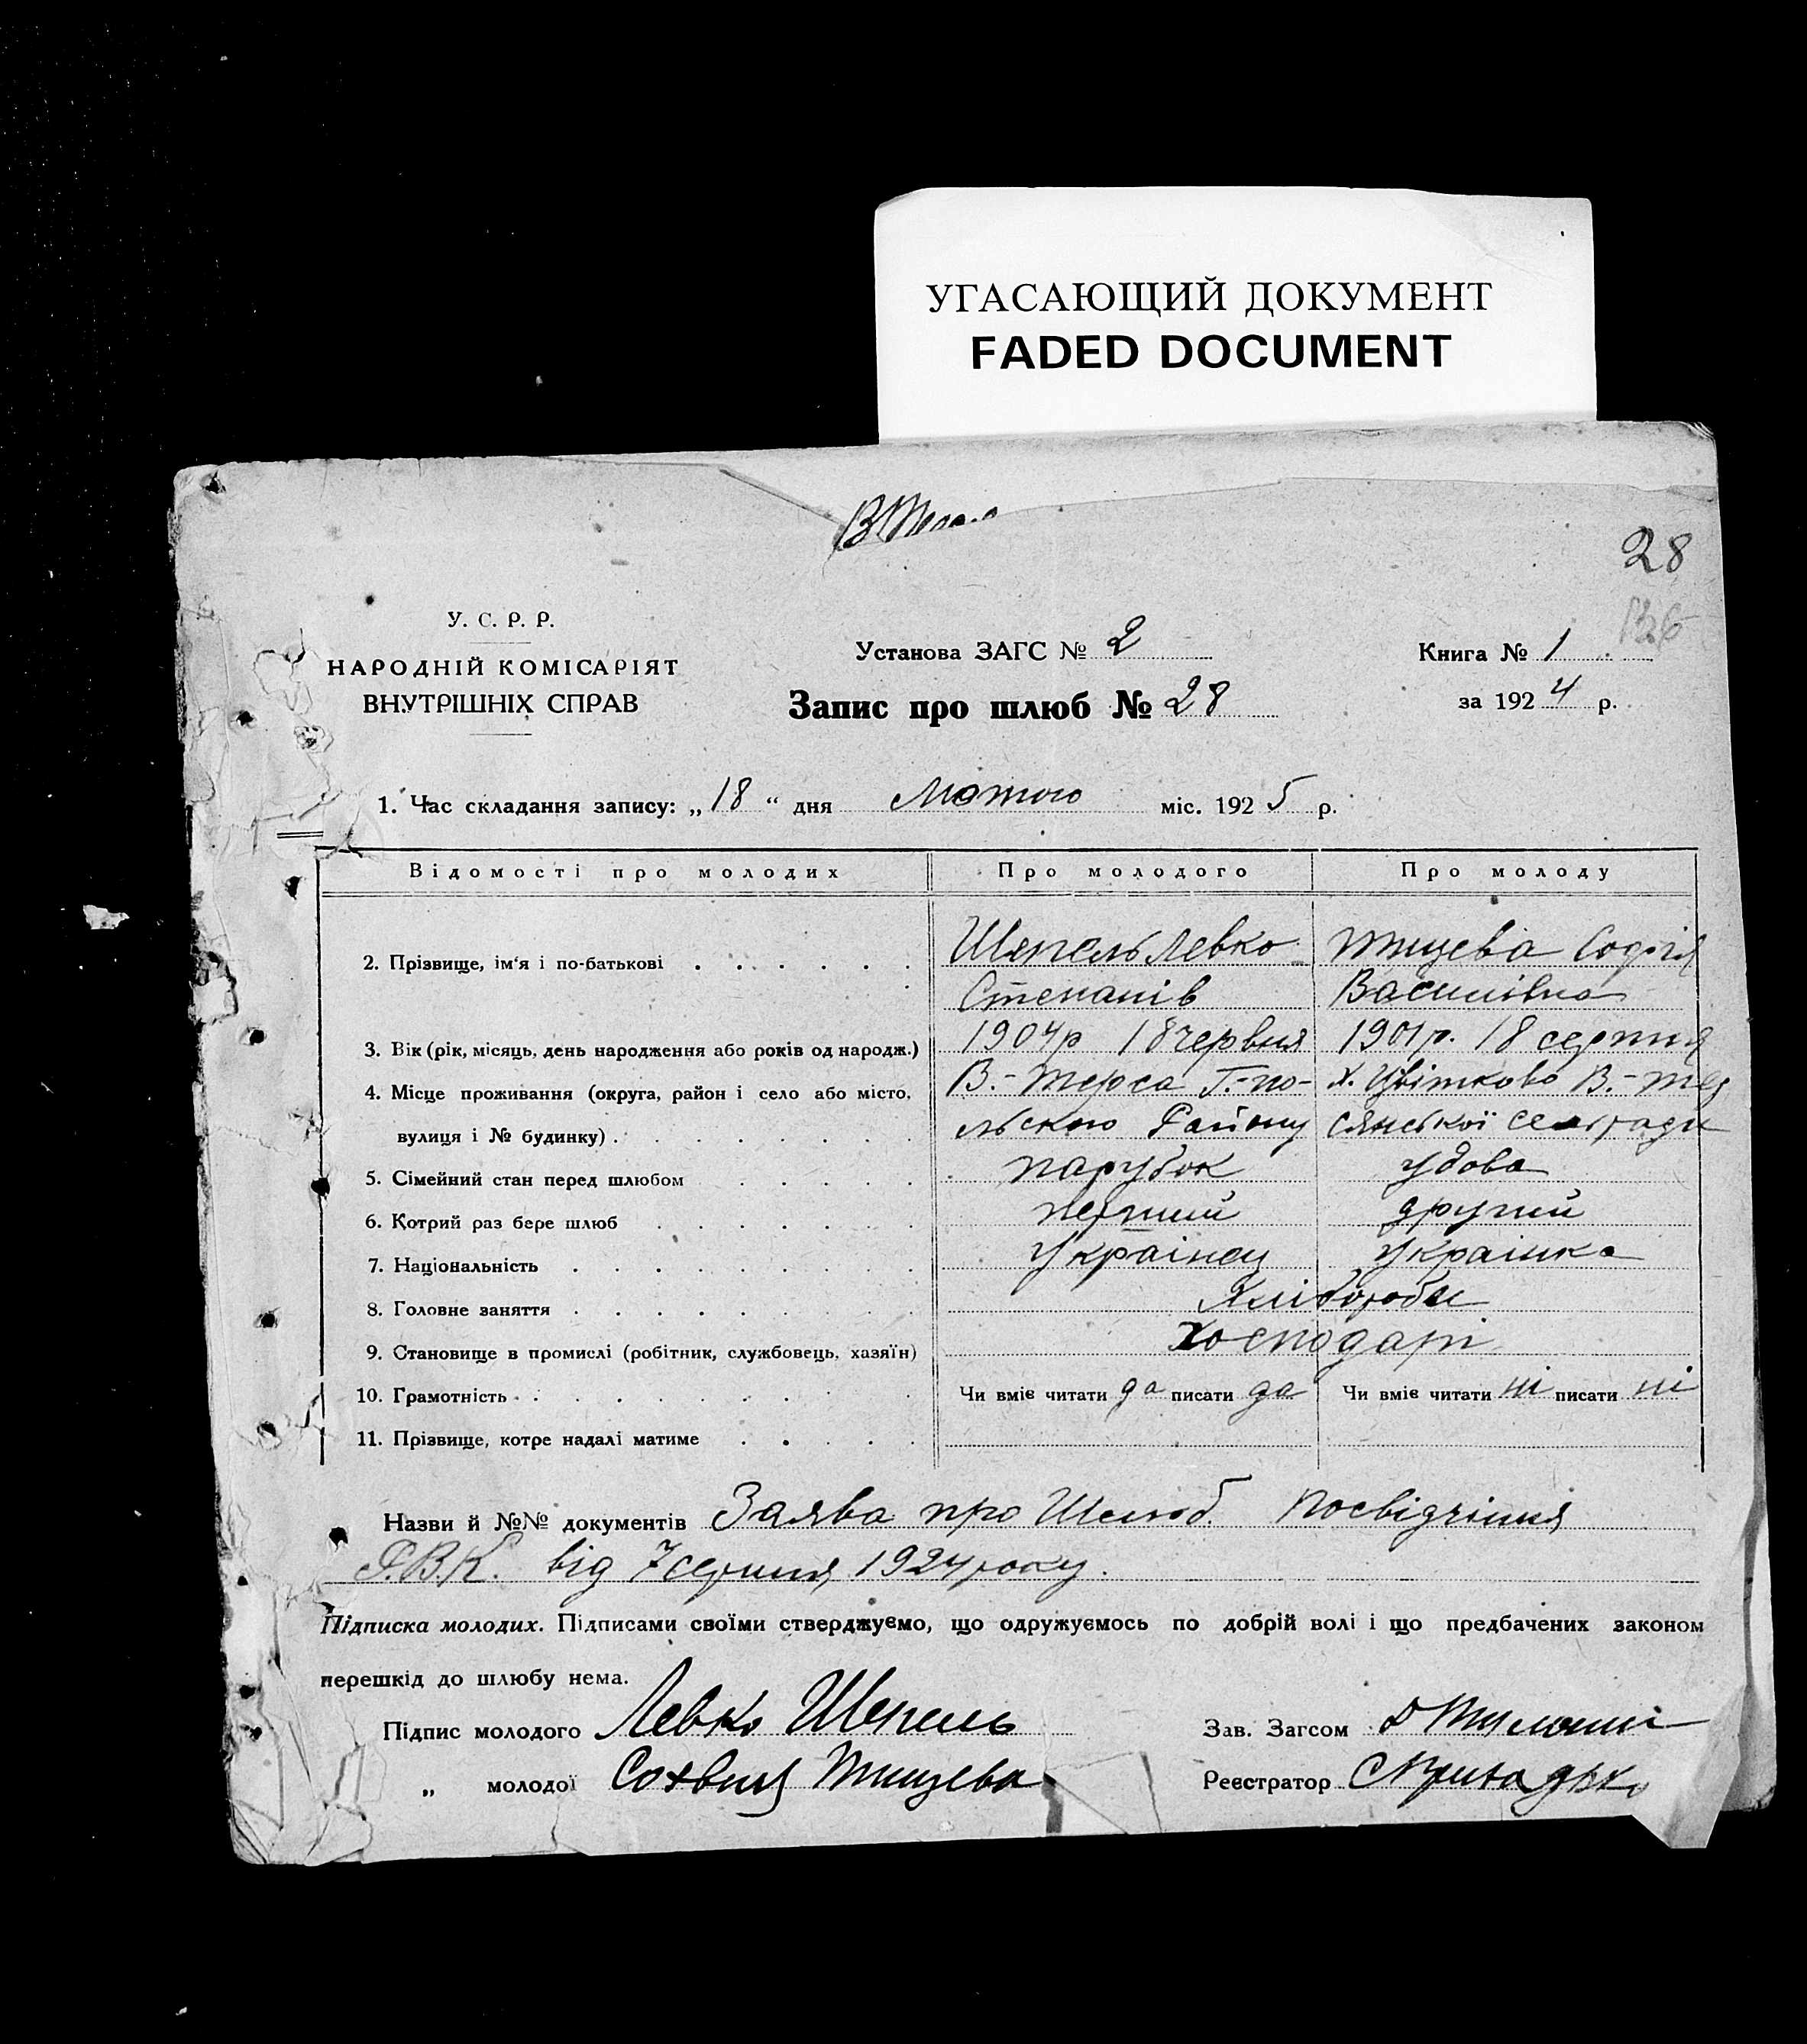 УГАСАЮЩИЙ ДОКУМЕНТ
FADED DOCUMENT
28
У. С. Р. Р.
НАРОДНІЙ КОМІСАРІЯТ
ВНУТРІШНІХ СПРАВ
Установа ЗАГС № 2
Запис про шлюб № 28
Книга № 1
за 1924 р.
1. Час складання запису: „18“ дня Лютого міс. 1925 р.
Відомості про молодих Про молодого Про молоду
2. Прізвище, ім'я і по-батькові Шепель Левко Тицева Софія
Степанів Василівна
3. Вік (рік, місяць, день народження або років од народж.) 1904р 18 червня 1901р. 18 серпня
4. Місце проживання (округа, район і село або місто, В.-Терса Г.-по- х. Цвіткове В.-Тер
вулиця і № будинку) льского Району сянської сельради
5. Сімейний стан перед шлюбом парубок удова
6. Котрий раз бере шлюб перший другий
7. Національність Українец Українка
8. Головне заняття Хлібороби
9. Становище в промислі (робітник, службовець, хазяїн) Господарі
10. Грамотність Чи вміє читати да писати да Чи вміє читати ні писати ні
11. Прізвище, котре надалі матиме
Назви й №№ документів Заява про Шлюб. Посвідчіння
Р.В.К. від 7 серпня 1924 року.
Підписка молодих. Підписами своїми стверджуємо, що одружуємось по добрій волі і що предбачених законом
перешкід до шлюбу нема.
Підпис молодого Левко Шепель Зав. Загсом
„ молодої Сохвия Тицева Реєстратор